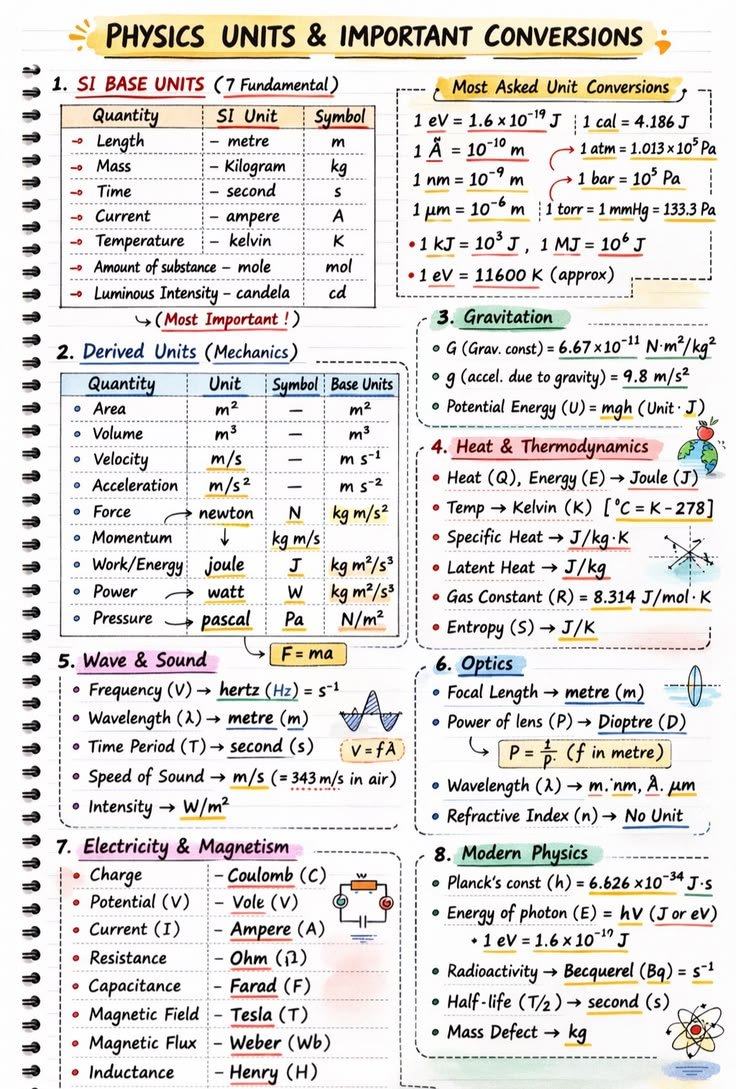 PHYSICS UNITS & IMPORTANT CONVERSIONS
1. SI BASE UNITS (7 Fundamental)
Quantity SI Unit Symbol
→ Length – metre m
→ Mass – Kilogram kg
→ Time – second s
→ Current – ampere A
→ Temperature – kelvin K
→ Amount of substance – mole mol
→ Luminous Intensity – candela cd
↳ (Most Important!)
Most Asked Unit Conversions
1 eV = 1.6 × 10⁻¹⁹ J 1 cal = 4.186 J
1 Ã = 10⁻¹⁰ m → 1 atm = 1.013 × 10⁵ Pa
1 nm = 10⁻⁹ m → 1 bar = 10⁵ Pa
1 μm = 10⁻⁶ m 1 torr = 1 mmHg = 133.3 Pa
• 1 kJ = 10³ J , 1 MJ = 10⁶ J
• 1 eV = 11600 K (approx)
2. Derived Units (Mechanics)
Quantity Unit Symbol Base Units
• Area m² — m²
• Volume m³ — m³
• Velocity m/s — m s⁻¹
• Acceleration m/s² — m s⁻²
• Force → newton N kg m/s²
• Momentum ↓ kg m/s
• Work/Energy joule J kg m²/s³
• Power → watt W kg m²/s³
• Pressure → pascal Pa N/m²
→ F = ma
3. Gravitation
• G (Grav. const) = 6.67 × 10⁻¹¹ N·m²/kg²
• g (accel. due to gravity) = 9.8 m/s²
• Potential Energy (U) = mgh (Unit · J)
4. Heat & Thermodynamics
• Heat (Q), Energy (E) → Joule (J)
• Temp → Kelvin (K) [°C = K – 278]
• Specific Heat → J/kg·K
• Latent Heat → J/kg
• Gas Constant (R) = 8.314 J/mol·K
• Entropy (S) → J/K
5. Wave & Sound
• Frequency (V) → hertz (Hz) = s⁻¹
• Wavelength (λ) → metre (m)
• Time Period (T) → second (s)
V = fλ
• Speed of Sound → m/s (= 343 m/s in air)
• Intensity → W/m²
6. Optics
• Focal Length → metre (m)
• Power of lens (P) → Dioptre (D)
↳ P = 1/p. (f in metre)
• Wavelength (λ) → m. nm, Å. μm
• Refractive Index (n) → No Unit
7. Electricity & Magnetism
• Charge – Coulomb (C)
• Potential (V) – Vole (V)
• Current (I) – Ampere (A)
• Resistance – Ohm (Ω)
• Capacitance – Farad (F)
• Magnetic Field – Tesla (T)
• Magnetic Flux – Weber (Wb)
• Inductance – Henry (H)
8. Modern Physics
• Planck's const (h) = 6.626 × 10⁻³⁴ J·s
• Energy of photon (E) = hV (J or eV)
• 1 eV = 1.6 × 10⁻¹⁹ J
• Radioactivity → Becquerel (Bq) = s⁻¹
• Half-life (T/2) → second (s)
• Mass Defect → kg